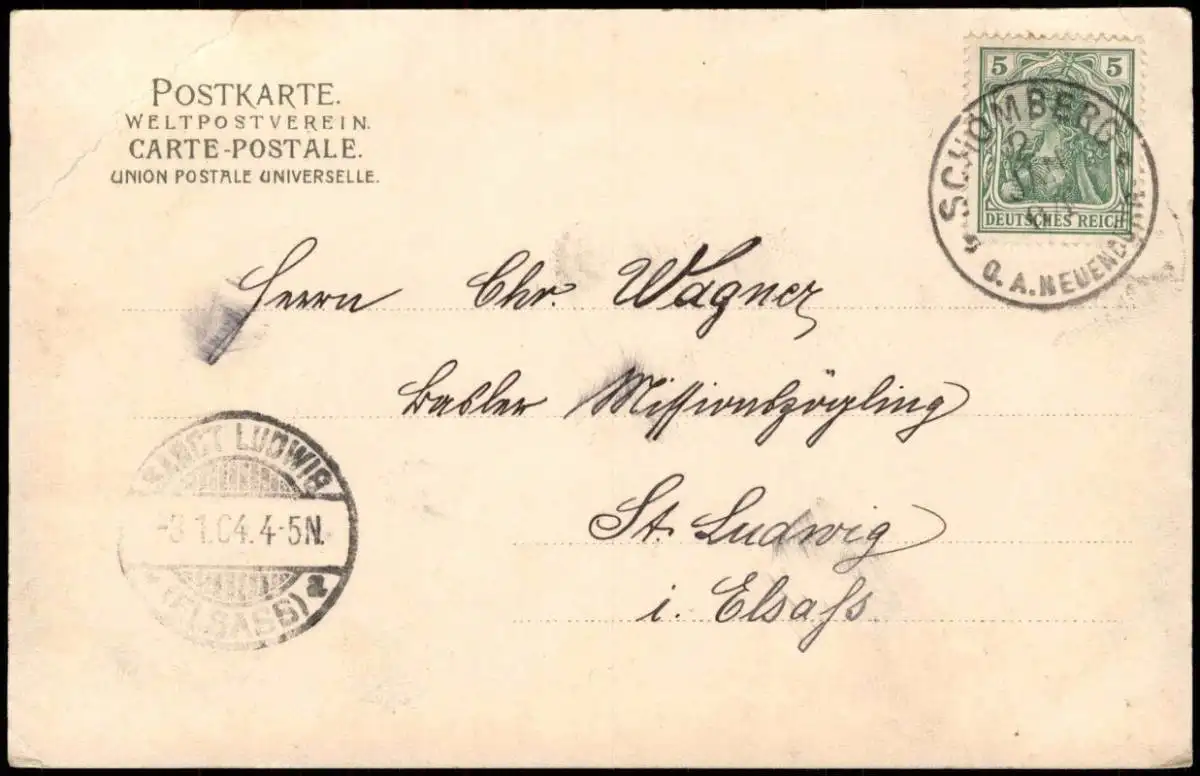 POSTKARTE.
WELTPOSTVEREIN.
CARTE-POSTALE.
UNION POSTALE UNIVERSELLE.
5 5
DEUTSCHES REICH
SCHÖMBERG
2 JAN
O.A. NEUENBÜRG
Herrn Chr. Wagner
Basler Missionszögling
St. Ludwig
i. Elsaß
SANCT LUDWIG
-3.1.04. 4-5N.
(ELSASS)